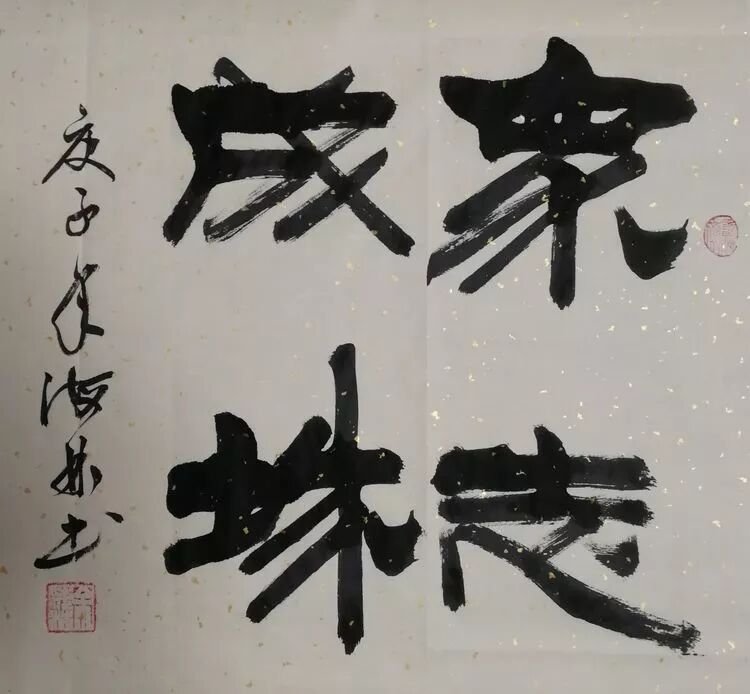 衆志
成城
庚子年海林书